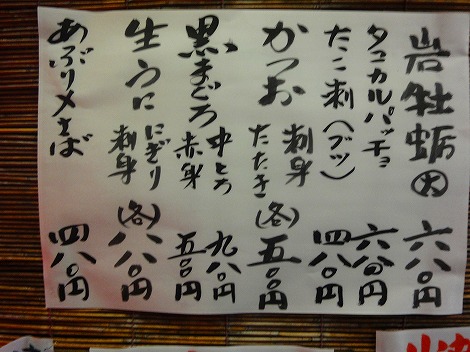 岩牡蛎(大) 六八〇円
タコカルパッチョ 六八〇円
たこ刺(ブツ) 四八〇円
かつお 刺身 たたき (各)五八〇円
黒まぐろ 中とろ 九八〇円
赤身 五八〇円
生うに にぎり 刺身 (各)八八〇円
あぶり〆さば 四八〇円